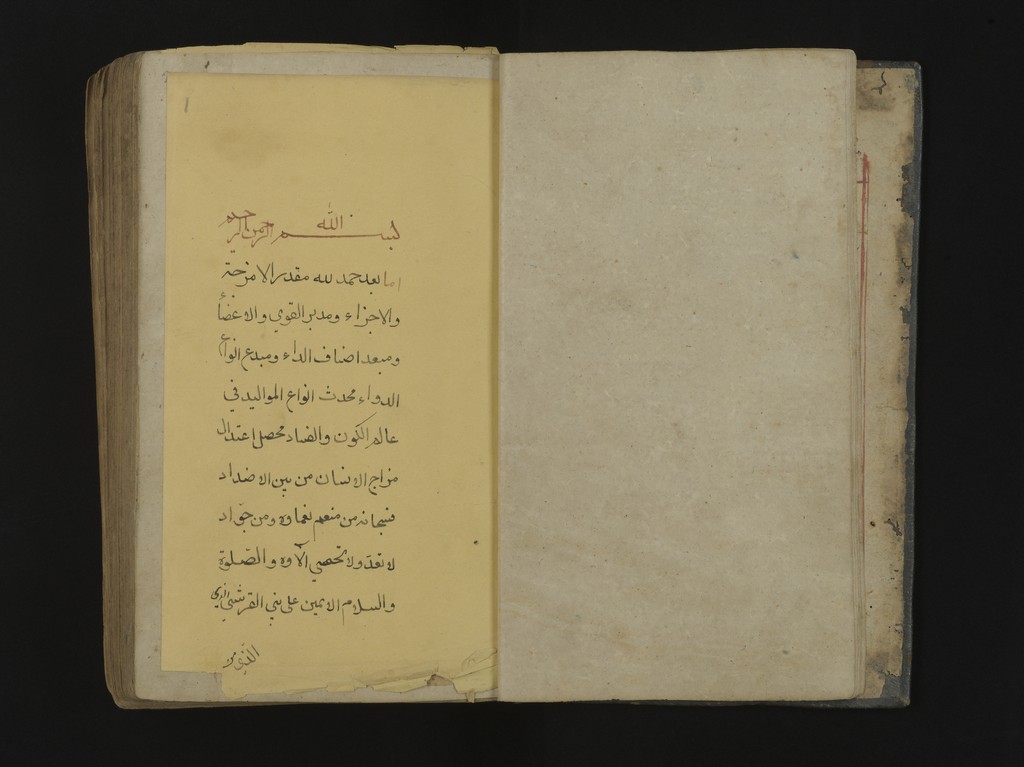 بسم الله الرحمن الرحيم
اما بعد حمد لله مقدر الامزجة
والاجزاء ومدبر القوي والاعضاء
ومبعد اضاف الداء ومبدع انواع
الدواء محدث انواع المواليد في
عالم الكون والفساد محصل اعتدال
مزاج الانسان من بين الاضداد
فسبحانه من منعم نعماوه ومن جواد
لا تعد ولا تحصي آلاوه والصلوة
والسلام الاتمين على نبي القرشي الذي